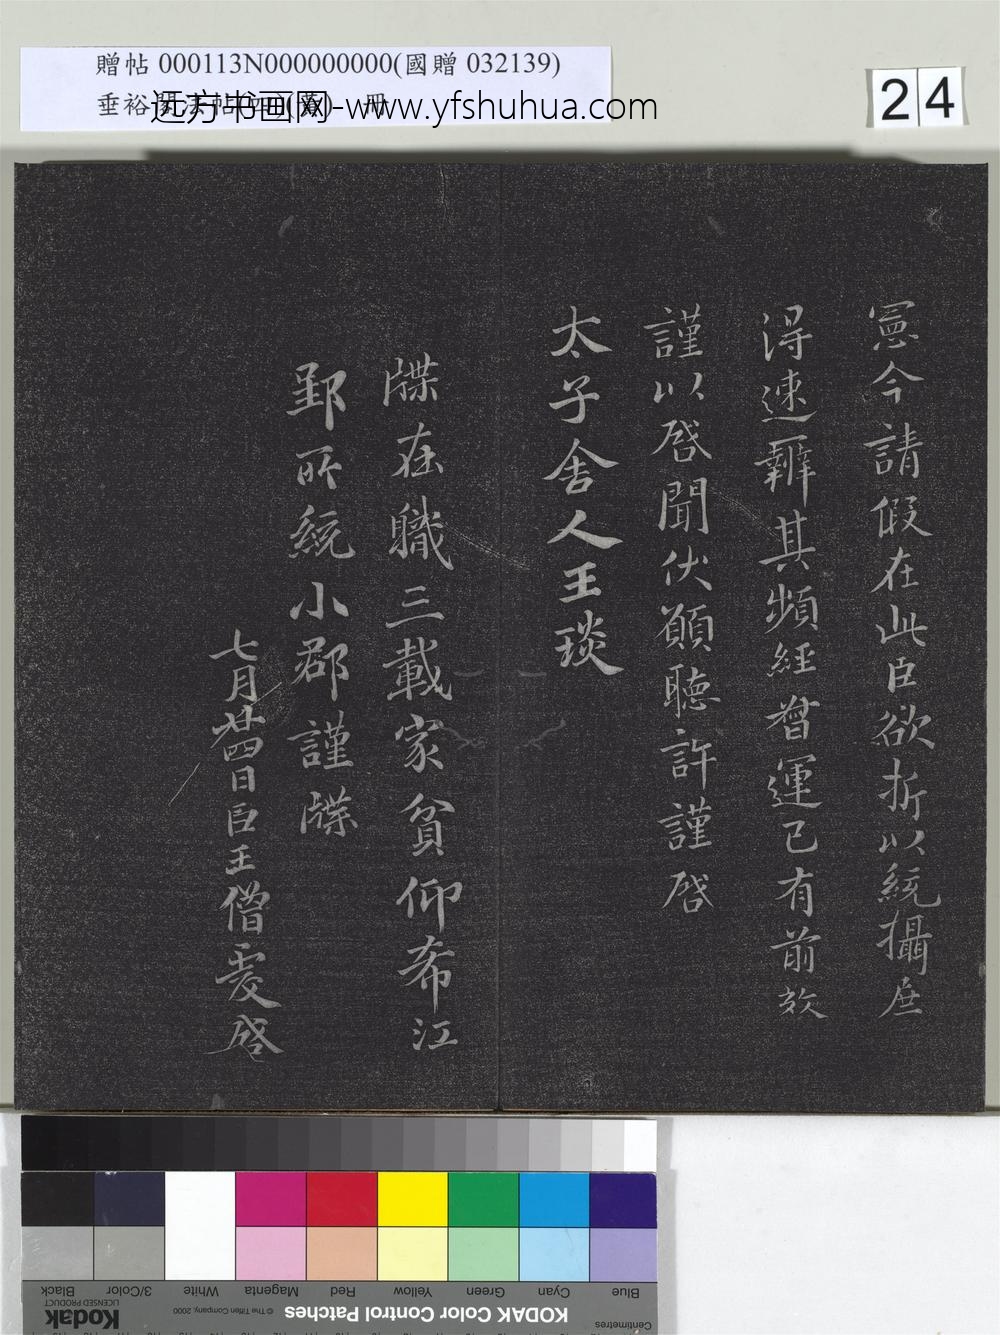 贈帖 000113N000000000(國贈 032139)
垂裕閣法帖
远方书画网-www.yfshuhua.com
24
憲今請假在此臣欲折以統攝庶
得速辦其頻經督運已有前效
謹以啓聞伏願聽許謹啓
太子舍人王琰
牒在職三載家貧仰希江
郢所統小郡謹牒
七月廿四日臣王僧虔啓
Blue Cyan Green Yellow Red Magenta White 3/Color Black
KODAK Color Control Patches
© The Tiffen Company, 2000
Kodak
LICENSED PRODUCT
Centimetres